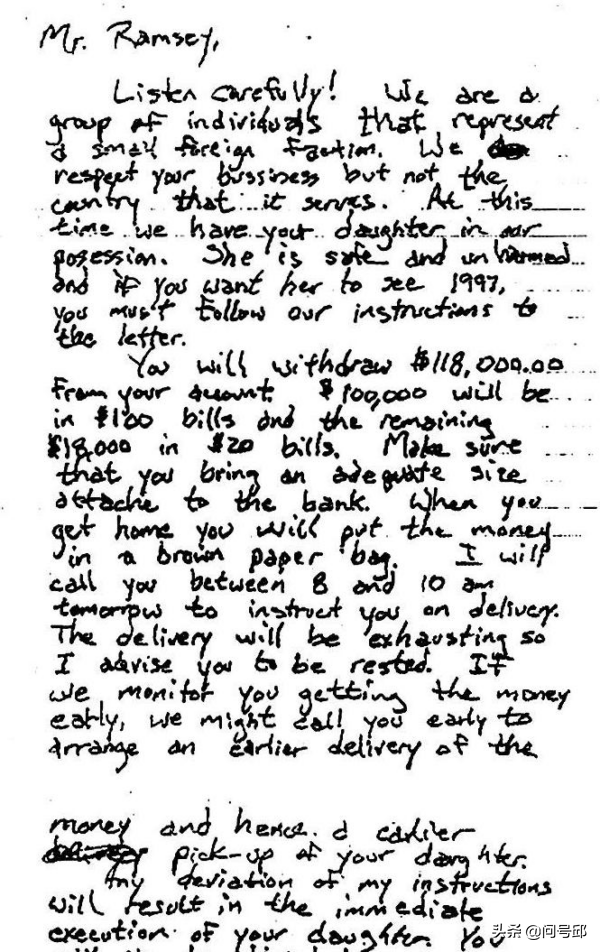 Mr. Ramsey,
Listen carefully! We are a
group of individuals that represent
a small foreign faction. We
respect your bussiness but not the
country that it serves. At this
time we have your daughter in our
posession. She is safe and unharmed
and if you want her to see 1997,
you must follow our instructions to
the letter.
You will withdraw $118,000.00
from your account. $100,000 will be
in $100 bills and the remaining
$18,000 in $20 bills. Make sure
that you bring an adequate size
attache to the bank. When you
get home you will put the money
in a brown paper bag. I will
call you between 8 and 10 am
tomorrow to instruct you on delivery.
The delivery will be exhausting so
I advise you to be rested. If
we monitor you getting the money
early, we might call you early to
arrange an earlier delivery of the
money and hence a earlier
delivery pick-up of your daughter.
Any deviation of my instructions
will result in the immediate
execution of your daughter. You
头条 @问号邱